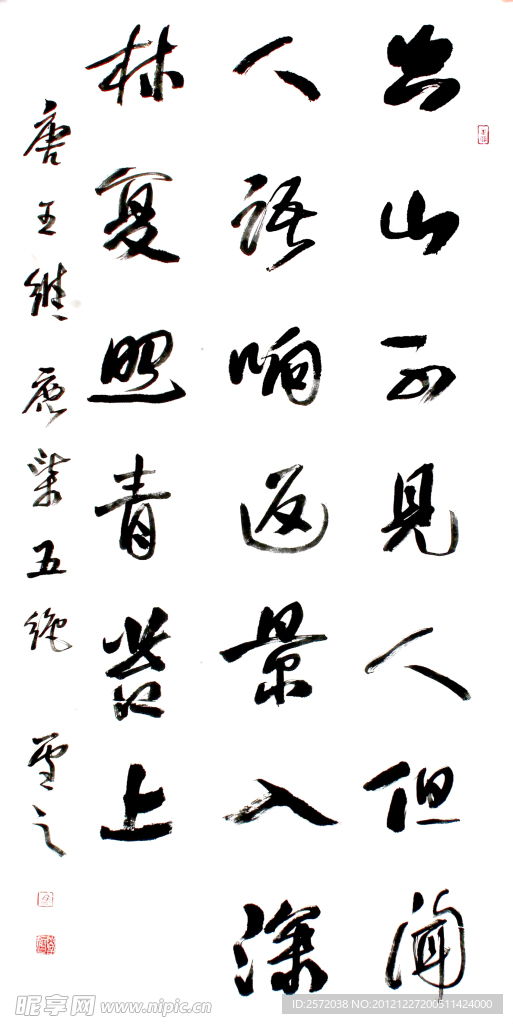 空山不見人但闻
人语响返景入深
林复照青苔上
唐王维鹿柴五绝
昵享网 www.nipic.cn
ID:2572038 NO:20121227200311424000